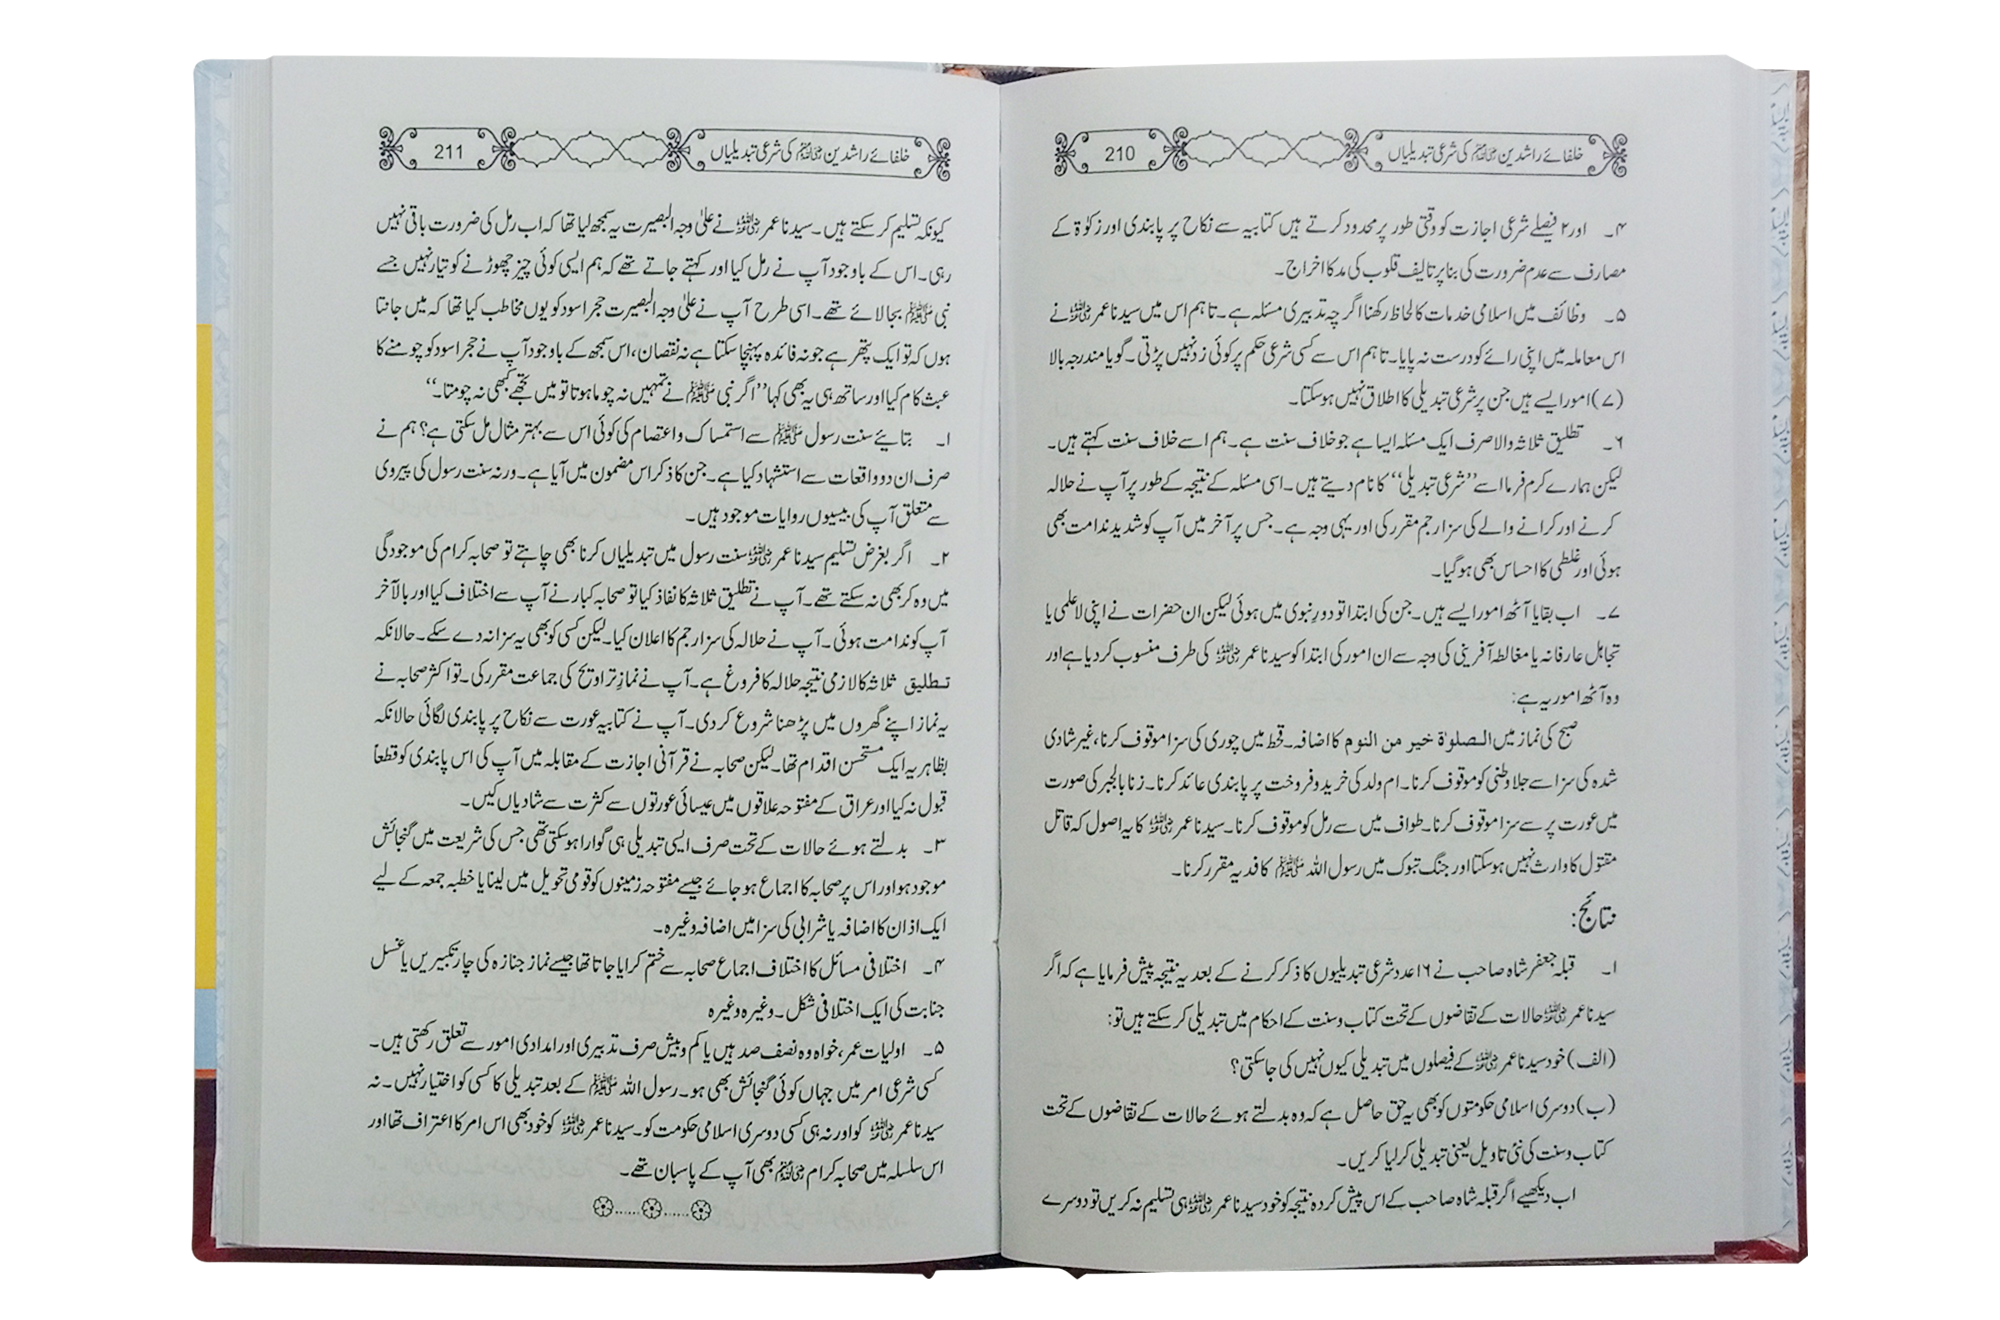 خلفائے راشدین ﷢ کی شرعی تبدیلیاں 210
۴۔ اور ۲ فیصلے شرعی اجازت کو وقتی طور پر محدود کرتے ہیں کتابیہ سے نکاح پر پابندی اور زکوٰۃ کے
مصارف سے عدم ضرورت کی بنا پر تالیف قلوب کی مد کا اخراج۔
۵۔ وظائف میں اسلامی خدمات کا لحاظ رکھنا اگرچہ تدبیری مسئلہ ہے۔ تاہم اس میں سیدنا عمر ﷜ نے
اس معاملہ میں اپنی رائے کو درست نہ پایا۔ تاہم اس سے کسی شرعی حکم پر کوئی زد نہیں پڑتی۔ گویا مندرجہ بالا
(۷) امور ایسے ہیں جن پر شرعی تبدیلی کا اطلاق نہیں ہو سکتا۔
۶۔ تطلیق ثلاثہ والا صرف ایک مسئلہ ایسا ہے جو خلاف سنت ہے۔ ہم اسے خلاف سنت کہتے ہیں۔
لیکن ہمارے کرم فرما اسے ’’شرعی تبدیلی‘‘ کا نام دیتے ہیں۔ اسی مسئلہ کے نتیجہ کے طور پر آپ نے حلالہ
کرنے اور کرانے والے کی سزا رجم مقرر کی اور یہی وجہ ہے۔ جس پر آخر میں آپ کو شدید ندامت بھی
ہوئی اور غلطی کا احساس بھی ہو گیا۔
۷۔ اب بقایا آٹھ امور ایسے ہیں۔ جن کی ابتدا تو دور نبوی میں ہوئی لیکن ان حضرات نے اپنی لاعلمی یا
تجاہل عارفانہ یا مغالطہ آفرینی کی وجہ سے ان امور کی ابتدا کو سیدنا عمر ﷜ کی طرف منسوب کر دیا ہے اور
وہ آٹھ امور یہ ہے:
صبح کی نماز میں الصلوٰۃ خیر من النوم کا اضافہ۔ قحط میں چوری کی سزا موقوف کرنا، غیر شادی
شدہ کی سزا سے جلاوطنی کو موقوف کرنا۔ ام ولد کی خرید و فروخت پر پابندی عائد کرنا۔ زنا بالجبر کی صورت
میں عورت پر سے سزا موقوف کرنا۔ طواف میں سے رمل کو موقوف کرنا۔ سیدنا عمر ﷜ کا یہ اصول کہ قاتل
مقتول کا وارث نہیں ہو سکتا اور جنگ تبوک میں رسول اللہ ﷺ کا فدیہ مقرر کرنا۔
نتائج:
۱۔ قبلہ جعفر شاہ صاحب نے ۱۶ عدد شرعی تبدیلیوں کا ذکر کرنے کے بعد یہ نتیجہ پیش فرمایا ہے کہ اگر
سیدنا عمر ﷜ حالات کے تقاضوں کے تحت کتاب و سنت کے احکام میں تبدیلی کر سکتے ہیں تو:
(الف) خود سیدنا عمر ﷜ کے فیصلوں میں تبدیلی کیوں نہیں کی جا سکتی؟
(ب) دوسری اسلامی حکومتوں کو بھی یہ حق حاصل ہے کہ وہ بدلتے ہوئے حالات کے تقاضوں کے تحت
کتاب و سنت کی نئی تاویل یعنی تبدیلی کر لیا کریں۔
اب دیکھیے اگر قبلہ شاہ صاحب کے اس پیش کردہ نتیجہ کو خود سیدنا عمر ﷜ ہی تسلیم نہ کریں تو دوسرے
خلفائے راشدین ﷢ کی شرعی تبدیلیاں 211
کیونکہ تسلیم کر سکتے ہیں۔ سیدنا عمر ﷜ نے علیٰ وجہ البصیرت یہ سمجھ لیا تھا کہ اب رمل کی ضرورت باقی نہیں
رہی۔ اس کے باوجود آپ نے رمل کیا اور کہتے جاتے تھے کہ ہم ایسی کوئی چیز چھوڑنے کو تیار نہیں جسے
نبی ﷺ بجا لائے تھے۔ اسی طرح آپ نے علیٰ وجہ البصیرت حجر اسود کو یوں مخاطب کیا تھا کہ میں جانتا
ہوں کہ تو ایک پتھر ہے جو نہ فائدہ پہنچا سکتا ہے نہ نقصان، اس سمجھ کے باوجود آپ نے حجر اسود کو چومنے کا
عبث کام کیا اور ساتھ ہی یہ بھی کہا ’’اگر نبی ﷺ نے تمہیں نہ چوما ہوتا تو میں تجھے کبھی نہ چومتا۔‘‘
۱۔ بتائیے سنت رسول ﷺ سے استمساک و اعتصام کی کوئی اس سے بہتر مثال مل سکتی ہے؟ ہم نے
صرف ان دو واقعات سے استشہاد کیا ہے۔ جن کا ذکر اس مضمون میں آیا ہے۔ ورنہ سنت رسول کی پیروی
سے متعلق آپ کی بیسیوں روایات موجود ہیں۔
۲۔ اگر بغرض تسلیم سیدنا عمر ﷜ سنت رسول میں تبدیلیاں کرنا بھی چاہتے تو صحابہ کرام کی موجودگی
میں وہ کر بھی نہ سکتے تھے۔ آپ نے تطلیق ثلاثہ کا نفاذ کیا تو صحابہ کبار نے آپ سے اختلاف کیا اور بالآخر
آپ کو ندامت ہوئی۔ آپ نے حلالہ کی سزا رجم کا اعلان کیا۔ لیکن کسی کو بھی یہ سزا نہ دے سکے۔ حالانکہ
تطلیق ثلاثہ کا لازمی نتیجہ حلالہ کا فروغ ہے۔ آپ نے نمازِ تراویح کی جماعت مقرر کی۔ تو اکثر صحابہ نے
یہ نماز اپنے گھروں میں پڑھنا شروع کر دی۔ آپ نے کتابیہ عورت سے نکاح پر پابندی لگائی حالانکہ
بظاہر یہ ایک مستحسن اقدام تھا۔ لیکن صحابہ نے قرآنی اجازت کے مقابلہ میں آپ کی اس پابندی کو قطعاً
قبول نہ کیا اور عراق کے مفتوحہ علاقوں میں عیسائی عورتوں سے کثرت سے شادیاں کیں۔
۳۔ بدلتے ہوئے حالات کے تحت صرف ایسی تبدیلی ہی گوارا ہو سکتی تھی جس کی شریعت میں گنجائش
موجود ہو اور اس پر صحابہ کا اجماع ہو جائے جیسے مفتوحہ زمینوں کو قومی تحویل میں لینا یا خطبہ جمعہ کے لیے
ایک اذان کا اضافہ یا شرابی کی سزا میں اضافہ وغیرہ۔
۴۔ اختلافی مسائل کا اختلاف اجماع صحابہ سے ختم کرایا جاتا تھا جیسے نماز جنازہ کی چار تکبیریں یا غسل
جنابت کی ایک اختلافی شکل۔ وغیرہ وغیرہ
۵۔ اولیات عمر، خواہ وہ نصف صد ہیں یا کم و بیش صرف تدبیری اور امدادی امور سے تعلق رکھتی ہیں۔
کسی شرعی امر میں جہاں کوئی گنجائش بھی ہو۔ رسول اللہ ﷺ کے بعد تبدیلی کا کسی کو اختیار نہیں۔ نہ
سیدنا عمر ﷜ کو اور نہ ہی کسی دوسری اسلامی حکومت کو۔ سیدنا عمر ﷜ کو خود بھی اس امر کا اعتراف تھا اور
اس سلسلہ میں صحابہ کرام ﷢ بھی آپ کے پاسبان تھے۔